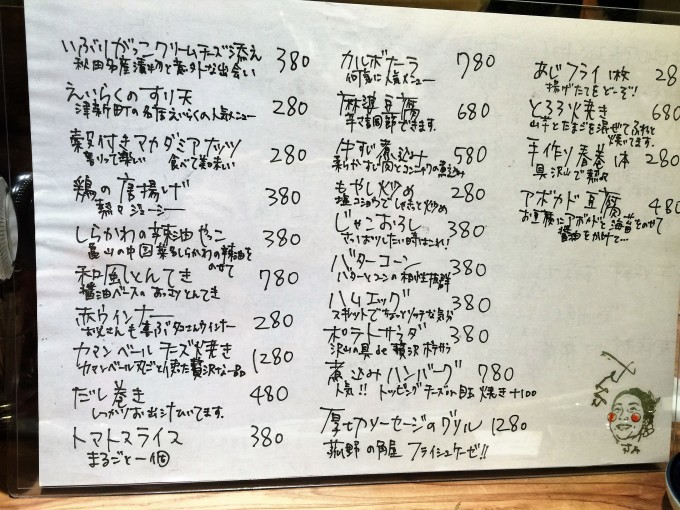 いぶりがっこクリームチーズ添え 380
秋田名産漬物と意外な出会い
えいらくのすり天 280
津新町の名店えいらくの人気メニュー
殻付きマカダミアナッツ 280
割って楽しい 食べて美味しい
鶏の唐揚げ 380
熱々ジューシー
しらかわの辣油やっこ 380
亀山の中国菜しらかわの辣油を
のせて
和風とんてき 780
醤油ベースのあっさりとんてき
赤ウインナー 280
お父さんも喜ぶタコさんウインナー
カマンベールチーズ焼き 1280
カマンベール丸ごと使た贅沢な一品
だし巻き 480
しっかりお出汁ひいてます。
トマトスライス 380
まるごと一個
カルボナーラ 780
何気に人気メニュー
麻婆豆腐 680
辛さ調節できます。
牛すじ煮込み 580
柔らか牛すじ肉とコンニャクの煮込み
もやし炒め 280
塩コショウでしゃきっと炒め
じゃこおろし 380
さっぱりしたい時はこれ!
バターコーン 380
バターとコーンの相性抜群
ハムエッグ 380
スキットでちょっとリッチな気分
ポテトサラダ 380
沢山の具de贅沢ポテサラ
煮込みハンバーグ 780
人気!! トッピングチーズor目玉焼き+100
厚切りソーセージのグリル 1280
菰野の角屋 フライシュケーゼ!!
あじフライ1枚 28
揚げたてをどーぞ!
とろろ焼き 680
山芋とたまごを混ぜてふわっと
焼いてます。
手作り春巻1本 280
具沢山で熱々
アボカド豆腐 480
お豆腐にアボカドと海苔をのせて
醤油をかけて…